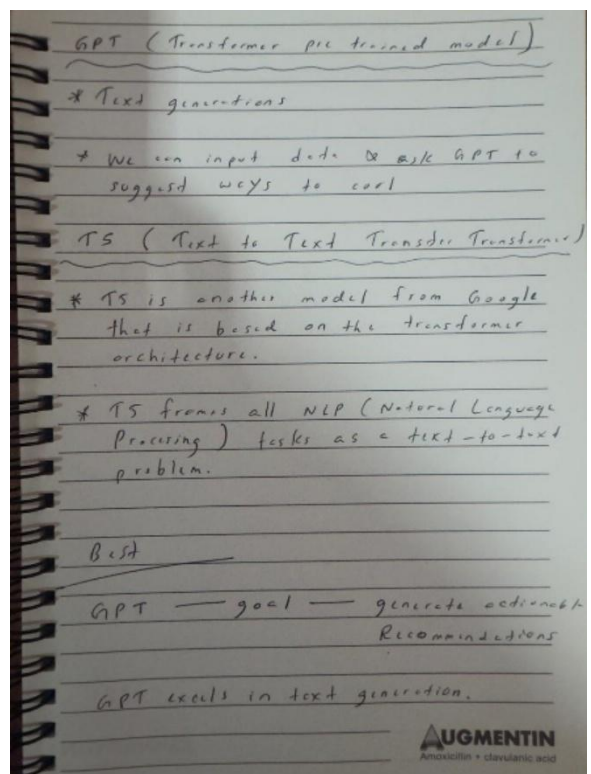 GPT ( Transformer pre trained model )
* Text generations
* We can input data & ask GPT to
suggest ways to
T5 ( Text to Text Transfer Transformer )
* T5 is another model from Google
that is based on the transformer
architecture.
* T5 frames all NLP ( Natural Language
Processing ) tasks as a text-to-text
problem.
Best
GPT — goal — generate actionable
Recommendations
GPT excels in text generation.
AUGMENTIN
Amoxicillin + clavulanic acid